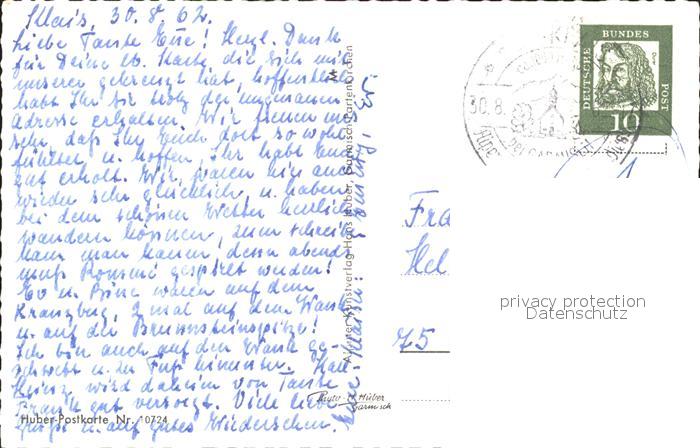 Klais, 30.8.62.
Liebe Tante Else! Herzl. Dank
für Deine lb. Karte, die sich mit
unserer gekreuzt hat, hoffentlich
habt Ihr sie trotz der ungenauen
Adresse erhalten. Wir freuen uns
sehr, daß Ihr Euch dort so wohl
fühltet u. hoffen, Ihr habt Euch
gut erholt. Wir waren hier auch
wieder sehr glücklich u. haben
bei dem schönen Wetter herrlich
wandern können, zum schreiben
kam man kaum, denn abends
muß Rommé gespielt werden!
Ev u. waren auf dem
Kranzberg, 2 mal auf dem Wank
u. auf der Brunnsteinspitze!
Ich bin auch auf den Wank ge-
schwebt u. zu Fuß hinunter. Karl-
Heinz wird daheim von Tante
gut versorgt. Viele liebe
Grüße u. auf gutes Wiedersehen.
Huber-Postkarte Nr. 10724
Alpiner Kunstverlag Hans Huber, Garmisch-Partenkirchen
Photo-H. Huber
Garmisch
DEUTSCHE BUNDES POST
10
30.8.
Fra
Hel
75
1
privacy protection
Datenschutz